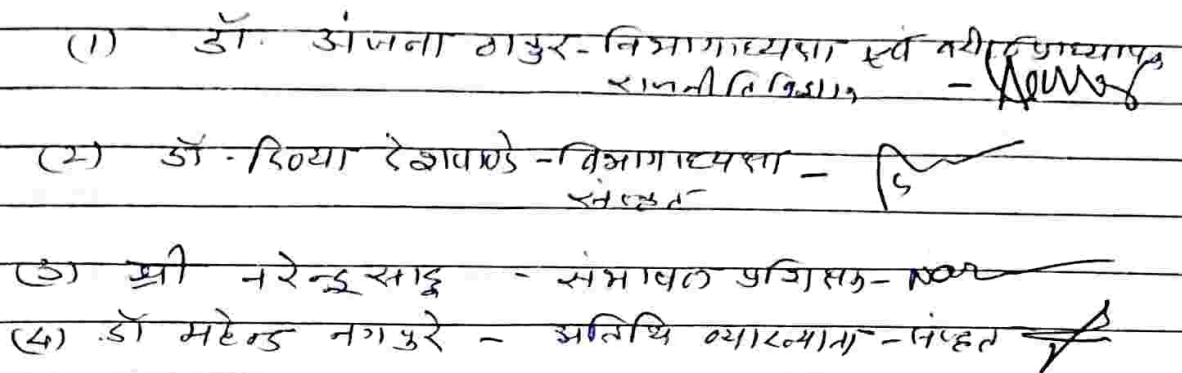 (1) डॉ. अंजना ठाकुर - विभागाध्यक्षा एवं वरिष्ठ प्राध्यापक
राजनीति विज्ञान -
(2) डॉ. दिव्या देशपाण्डे - विभागाध्यक्षा -
संस्कृत
(3) श्री नरेन्द्र साहू - संभावित प्रशिक्षक -
(4) डॉ महेन्द्र नगपुरे - अतिथि व्याख्याता - संस्कृत